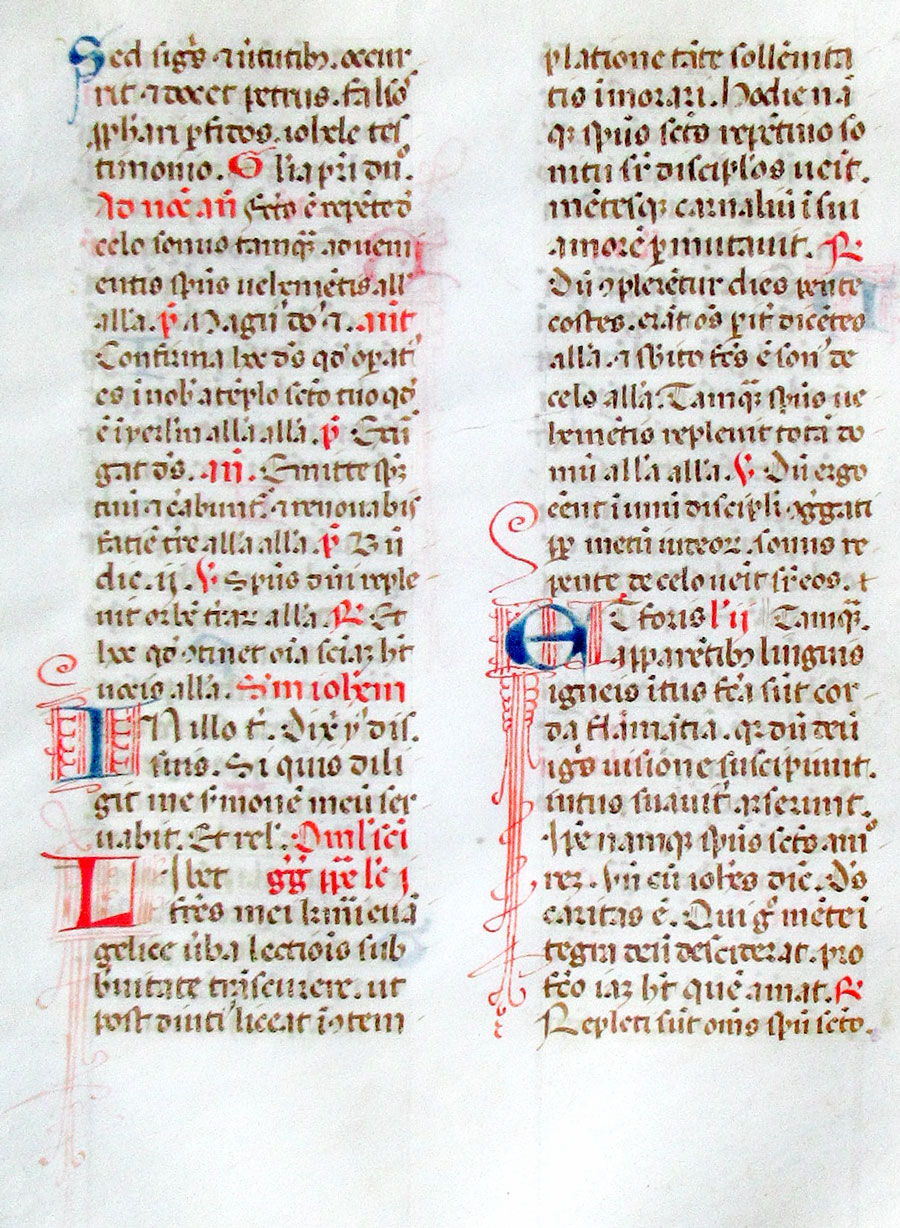 Sed sigıs ⁊ ůtutibꝫ. occur
rit ⁊ docet petrus. falso
ꝓphari ꝑfidos. iohele tes
timonio. Glia pri dn̄o.
Ad noc̄ an̄ Fcūs ē repēte d̓
celo sonus tamqꝫ adueni
entis spūs uehemētis all̓
all̓a. p̄ Magn̄ do̓ ⁊. an̄t
Confirma hoc d̄s qd̓ opat̓
es i nob̓ a tēplo scto tuo qd̓
ē i yerl̄m all̓a all̓a. p̄ Exur̄
gat d̄s. an̄. Emitte spm̄
tuū ⁊ c̓abunt̓. ⁊ renouabis
faciē t̓re all̓a all̓a. p̄ Bn̄
dic. ıj. ꝟ Spūs dn̄i reple
uit orbē t̓rar̄ all̓a. ℟ Et
hoc qd̓ ꝯtinet oīa sciaꝫ ht̄
uocis all̓a. S'm ioh̄em
IN illo t̄. Dix̄ yh̄s dis.
suis. Si quis dili
git me s'monē meū ser
uabit. Et rel̓. Omīl̓ sc̄i
Libet gḡ pp̄e lc̄ j
fr̄es mei kmī euā
gelice ůba lectiōis sub
b̓uitate trāscurere. ut
post diuti̓ liceat i ꝯtem
platione tāte sollēnita
tis imorari. Hodie nā
qꝫ spūs sctō repētino so
nitu sr̄ discip̄los uēit.
mētesqꝫ carnaliū i sui
amorē ꝑmutauit. ℟
Dū ꝯplerētur dies pente
costes. erāt oīs parit̓ dicētes
all̓a. ⁊ sbito fc̄s ē son̓ de
celo all̓a. Tamqꝫ spūs ue
hemētis repleuit totā do
mū all̓a all̓a. ꝟ Dū ergo
eēnt i unū discip̄li ꝯg̓gati
ꝓp̄ metū iudeoꝝ. sonus re
pente de celo uēit sr̄ eos. ⁊
ET foris l̓ ıj Tamqꝫ.
apparētibꝫ linguis
igneis ītus fc̄a sūt cor
da flāmātia. qꝫ dū deū
i igīs uisione suscipiunt.
intus suauit̓ arserunt.
Ip̄e namqꝫ spūs sctō amo̓
rē ē. Vn̄ ⁊ ioh̄es dic̄. D̄s
caritas ē. Qui gͥ mēte i
tegra deū desiderat. pro
fc̄o iaꝫ ht̄ quē amat. ℟
Repleti sūt om̄s spū sctō.